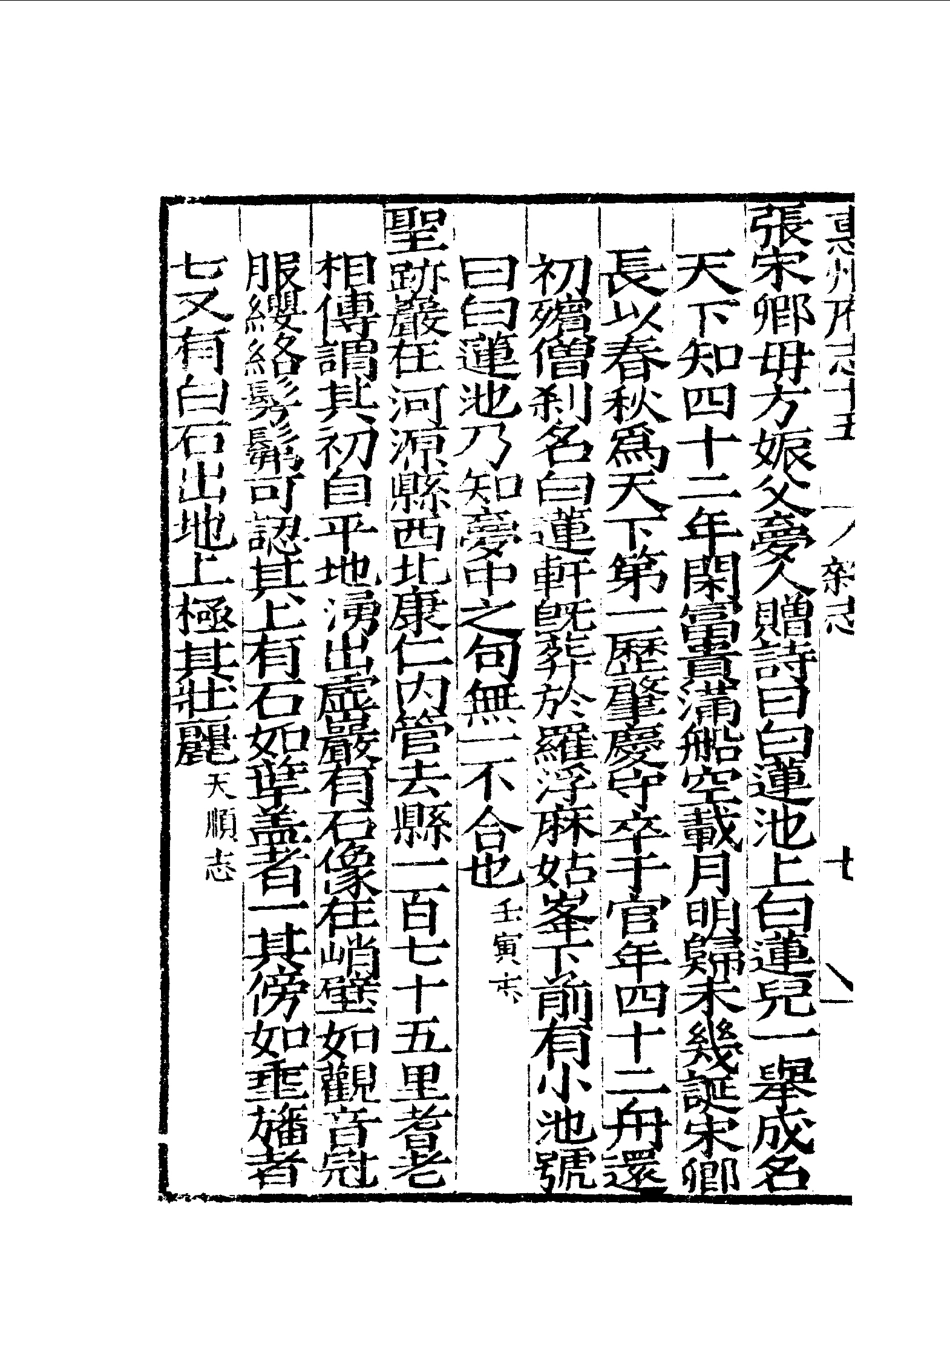 惠州府志十五　雜志　七
張宋卿毋方娠父夣人贈詩曰白蓮池上白蓮兒一舉成名
天下知四十二年閑富貴滿船空載月明歸未幾誕宋卿
長以春秋爲天下第一歷肇慶守卒于官年四十二舟還
初殯僧刹名曰蓮軒旣葬於羅浮麻姑峯下前有小池號
曰白蓮池乃知夣中之句無一不合也壬寅志
聖跡巖在河源縣西北康仁内管去縣一百七十五里耆老
相傳謂其初自平地湧出虛巖有石像在峭壁如觀音冠
服纓絡髣髴可認其上有石如華盖者一其傍如垂旛者
七又有白石出地上極其壯麗天順志